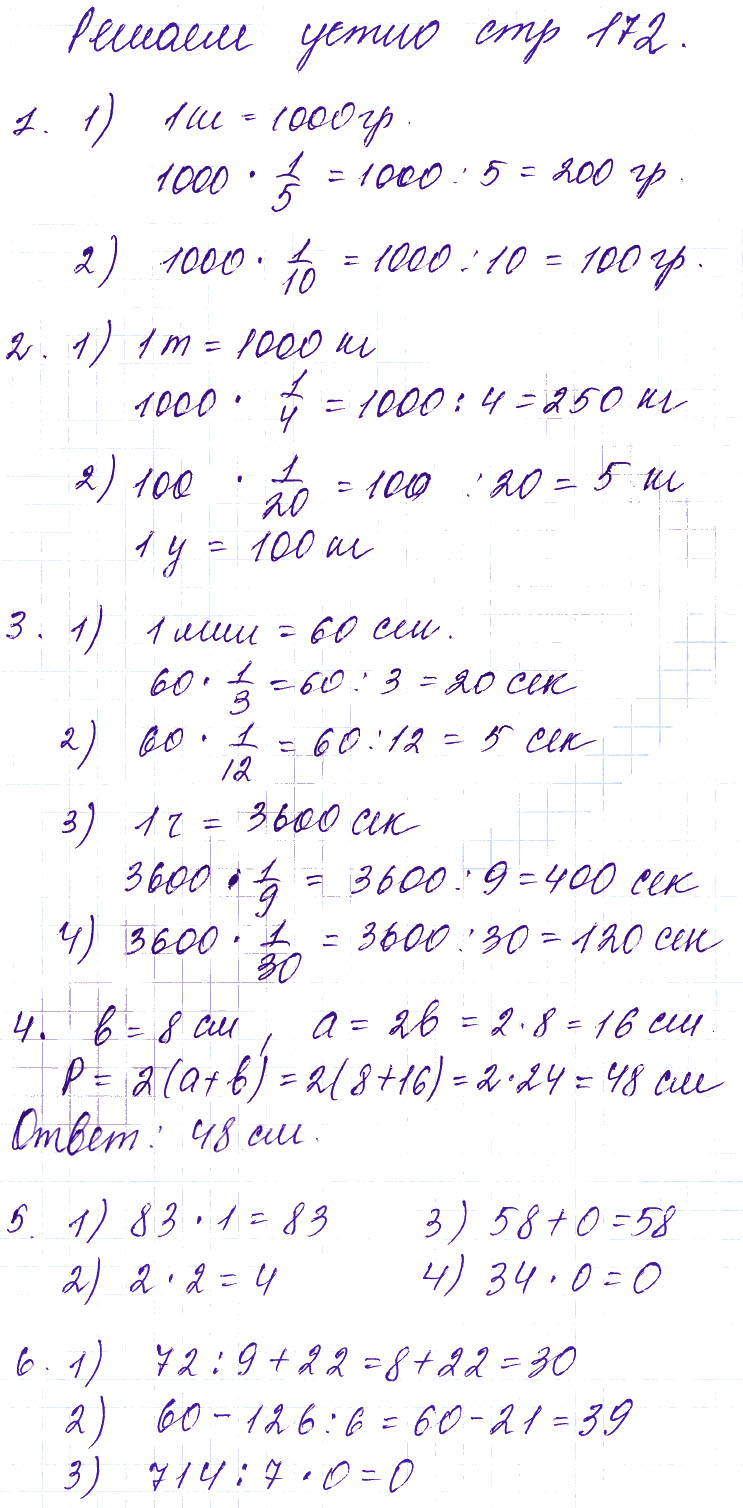 Решаем устно стр 172.
1. 1) 1кг = 1000гр.
1000 · 1/5 = 1000 : 5 = 200 гр.
2) 1000 · 1/10 = 1000 : 10 = 100 гр.
2. 1) 1т = 1000 кг
1000 · 1/4 = 1000 : 4 = 250 кг
2) 100 · 1/20 = 100 : 20 = 5 кг
1 ц = 100 кг
3. 1) 1 мин = 60 сек.
60 · 1/3 = 60 : 3 = 20 сек
2) 60 · 1/12 = 60 : 12 = 5 сек
3) 1 ч = 3600 сек
3600 · 1/9 = 3600 : 9 = 400 сек
4) 3600 · 1/30 = 3600 : 30 = 120 сек
4. b = 8 см, a = 2b = 2 · 8 = 16 см
P = 2(a+b) = 2(8+16) = 2 · 24 = 48 см
Ответ: 48 см.
5. 1) 83 · 1 = 83 3) 58 + 0 = 58
2) 2 · 2 = 4 4) 34 · 0 = 0
6. 1) 72 : 9 + 22 = 8 + 22 = 30
2) 60 - 126 : 6 = 60 - 21 = 39
3) 714 : 7 · 0 = 0